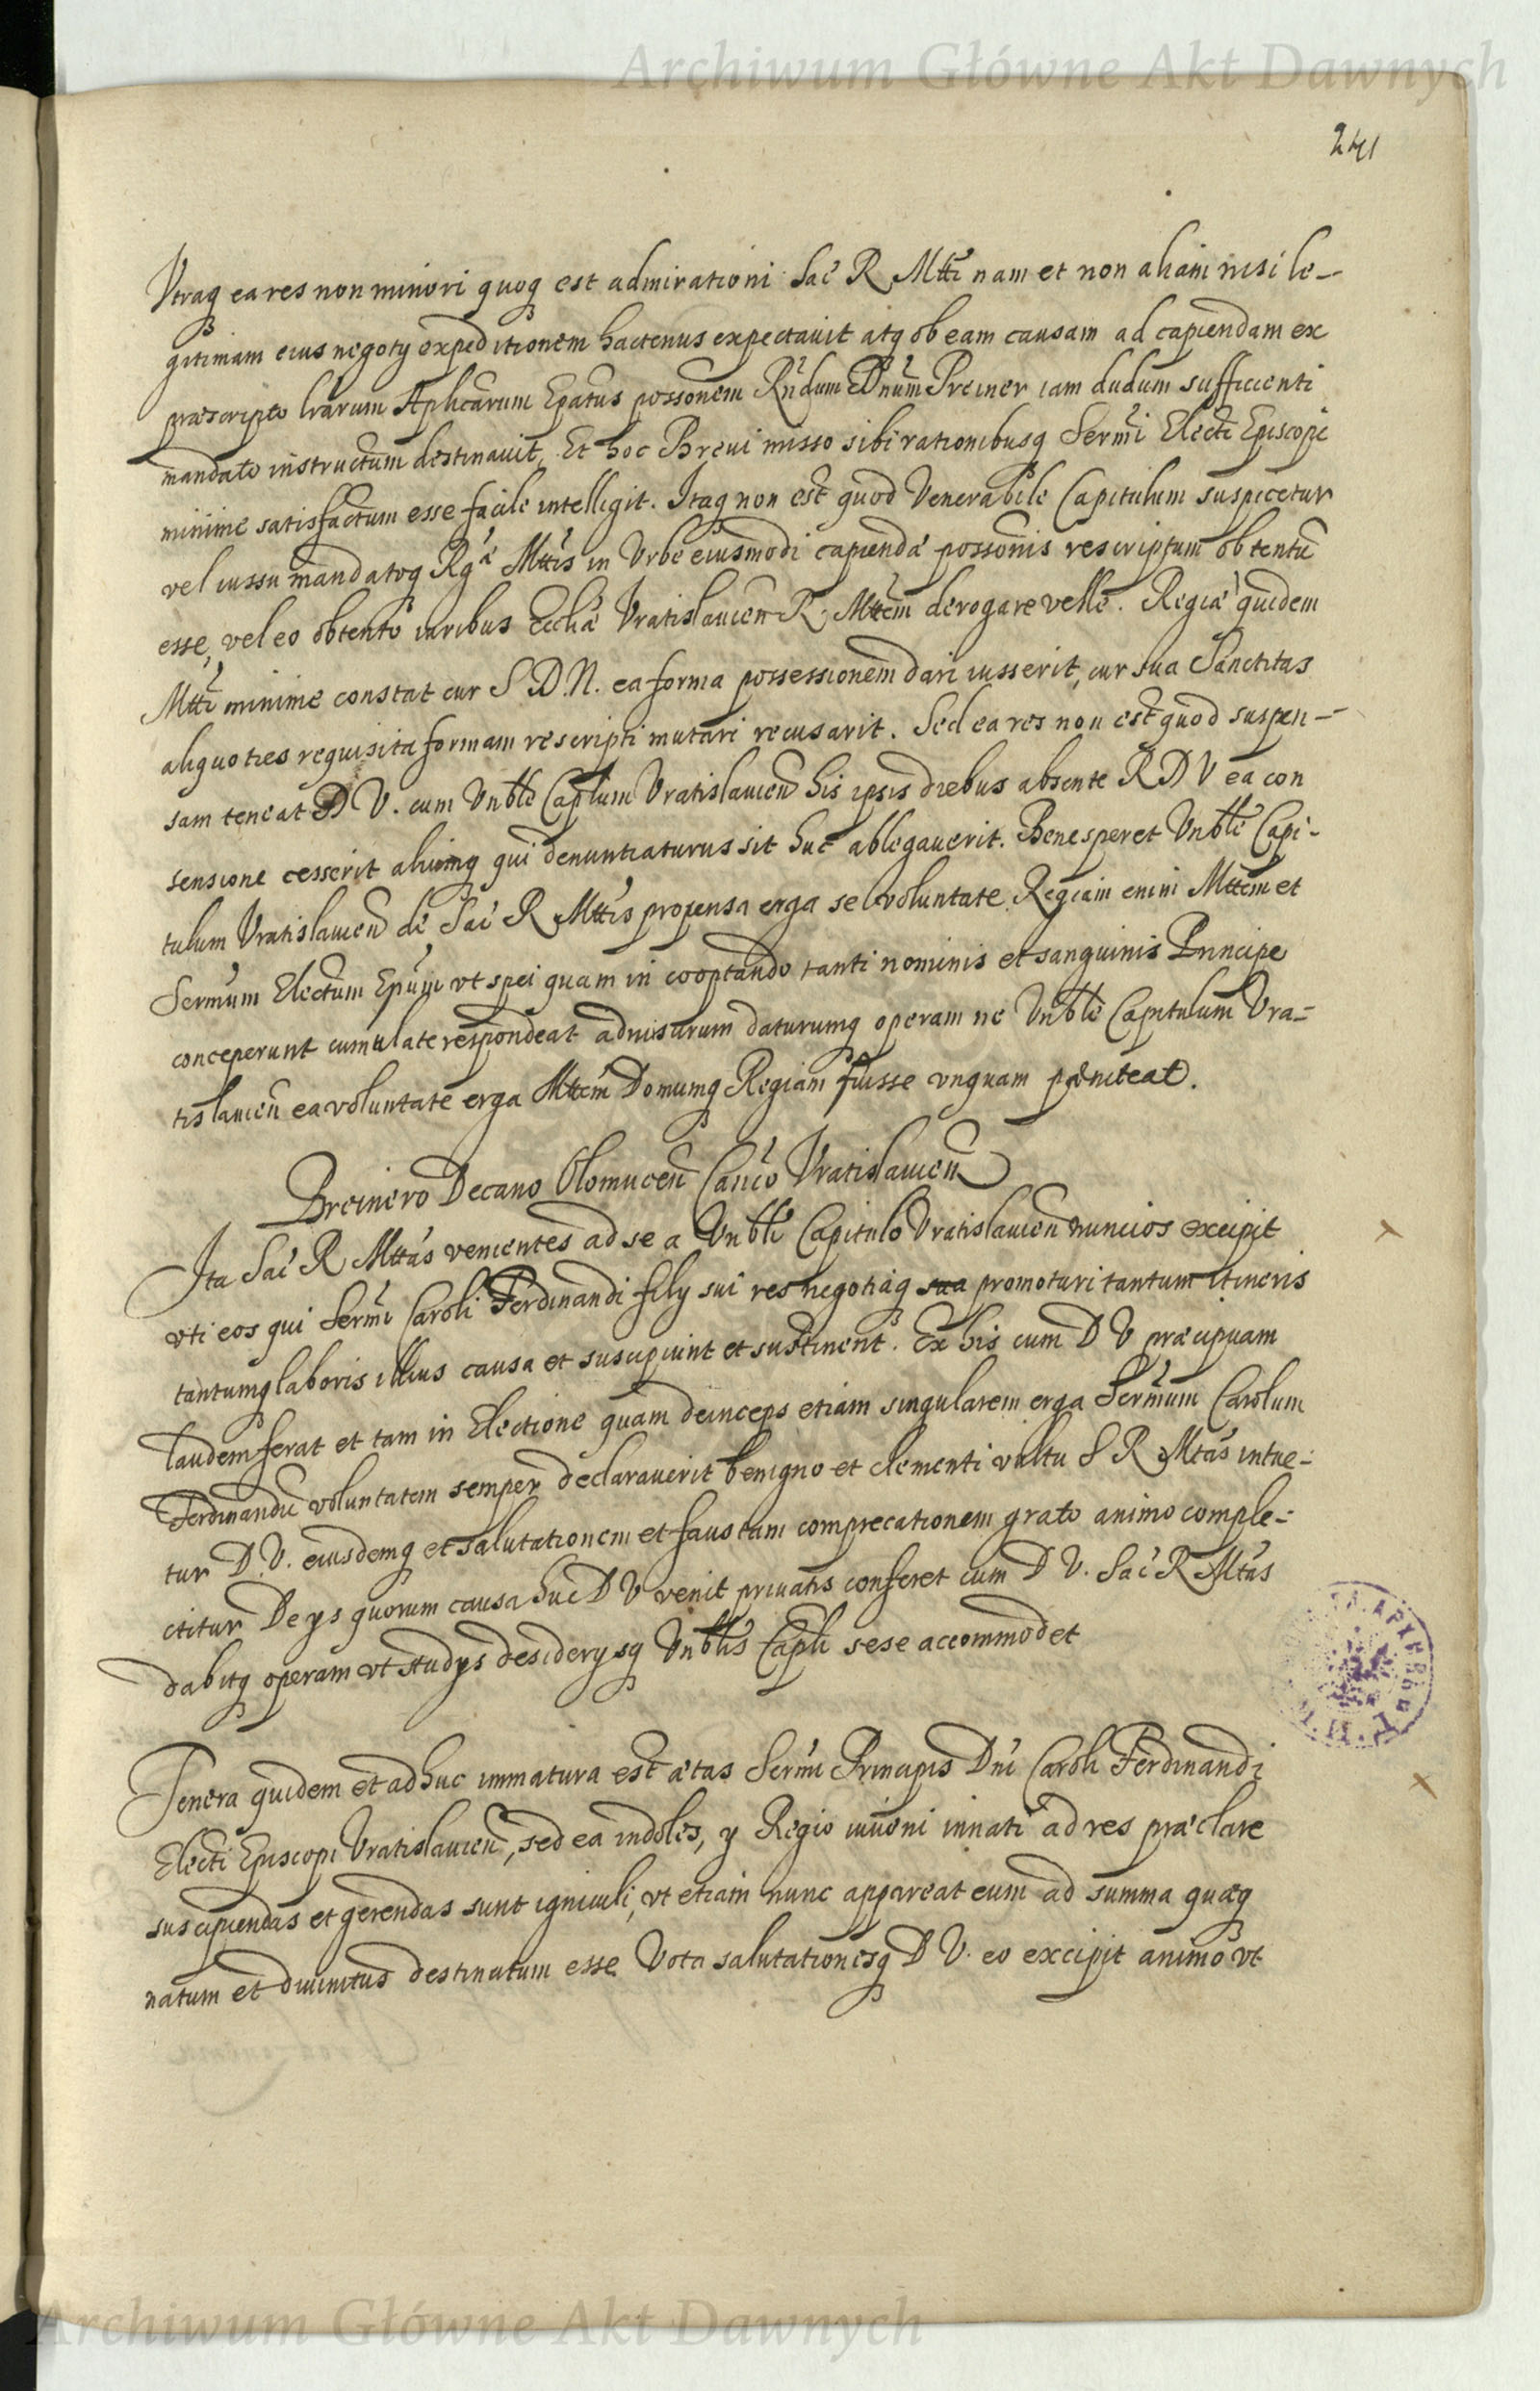 Archiwum Główne Akt Dawnych
241
Vtraq ea res non minori quoq est admirationi Sac̃ R Mtti nam et non aliam nisi le-
gitimam eius negotÿ expeditionem hactenus expectauit atq ob eam causam ad capiendam ex
præscripto lrarum Aplicarum Epatus possonem Rndum Dnum Preiner iam dudum sufficienti
mandato instructum destinauit, Et hoc Breui misso sibi rationibusq Sermi Electi Episcopi
minime satisfactum esse facile intelligit. Itaq non est quod Venerabile Capitulum suspicetur
vel iussu mandatoq Rgæ Mttis in Vrbe eiusmodi capiendæ possonis rescriptum obtentũ
esse, vel eo obtento iuribus Eccliæ Vratislauien R. Mttem derogare velle. Regiæ quidem
Mtti minime constat cur S. D. N. ea forma possessionem dari iusserit, cur sua Sanctitas
aliquoties requisita formam rescripti mutari recusarit. Sed ea res non est quod suspen-
sam teneat D V. cum Vnble Caplum Vratislauien his ipsis diebus absente R D V ea con
sensione cesserit aliumq qui denuntiaturus sit huc ablegauerit. Bene speret Vnble Capi-
tulum Vratislauien de Sac̃ R Mttis propensa erga se voluntate. Regiam enim Mttem et
Sermum Electum Epum vt spei quam in cooptando tanti nominis et sanguinis Principe
conceperunt cumulate respondeat adnisurum daturumq operam ne Vnble Capitulum Vra-
tislauien ea voluntate erga Mttem Domumq Regiam fuisse vnquam pæniteat.
Breinero Decano Olomucen Canco Vratislauien
Ita Sac̃ R Mttas venientes ad se a Vnbli Capitulo Vratislauien nuncios excipit
vti eos qui Sermi Caroli Ferdinandi filÿ sui res negotiaq sua promoturi tantum itineris
tantumq laboris illius causa et suscipiunt et sustinent. Ex his cum D V præcipuam
laudem ferat et tam in Electione quam deinceps etiam singularem erga Sermum Carolum
Ferdinandũ voluntatem semper declarauerit benigno et clementi vultu S R Mtas intue-
tur D. V. eiusdemq et salutationem et faustam comprecationem grato animo comple-
ctitur De ÿs quorum causa huc D V venit priuatis conferet cum D V. Sac̃ R Mtas
dabitq operam vt studÿs desiderÿsq Vnblis Capli sese accommodet
Tenera quidem et adhuc immatura est ætas Sermi Principis Dni Caroli Ferdinandi
Electi Episcopi Vratislauien, sed ea indoles, ÿ Regio iuueni innati ad res præclare
suscipiendas et gerendas sunt igniculi, vt etiam nunc appareat eum ad summa quæq
natum et diuinitus destinatum esse Vota salutationesq D V. eo excipit animo vt
Archiwum Główne Akt Dawnych